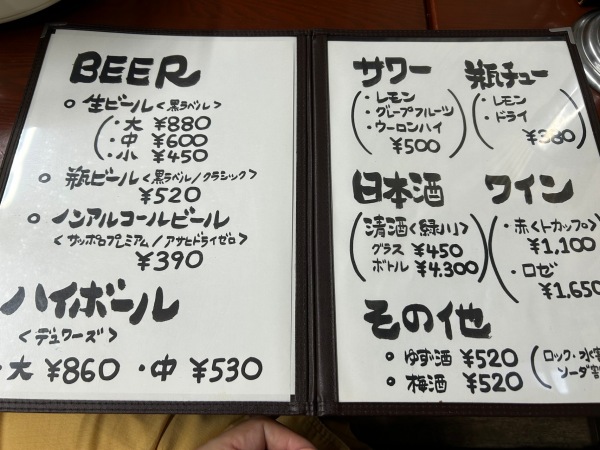 BEER
○ 生ビール〈黒ラベル〉
・大 ¥880
・中 ¥600
・小 ¥450
○ 瓶ビール〈黒ラベル/クラシック〉
¥520
○ ノンアルコールビール
〈サッポロプレミアム/アサヒドライゼロ〉
¥390
ハイボール
〈デュワーズ〉
・大 ¥860 ・中 ¥530
サワー
・レモン
・グレープフルーツ
・ウーロンハイ
¥500
瓶チュー
・レモン
・ドライ
¥380
日本酒
清酒〈緑川〉
グラス ¥450
ボトル ¥4.300
ワイン
・赤〈トカップ〉
¥1,100
・ロゼ
¥1,650
その他
○ ゆず酒 ¥520
○ 梅酒 ¥520
ロック・水割
ソーダ割